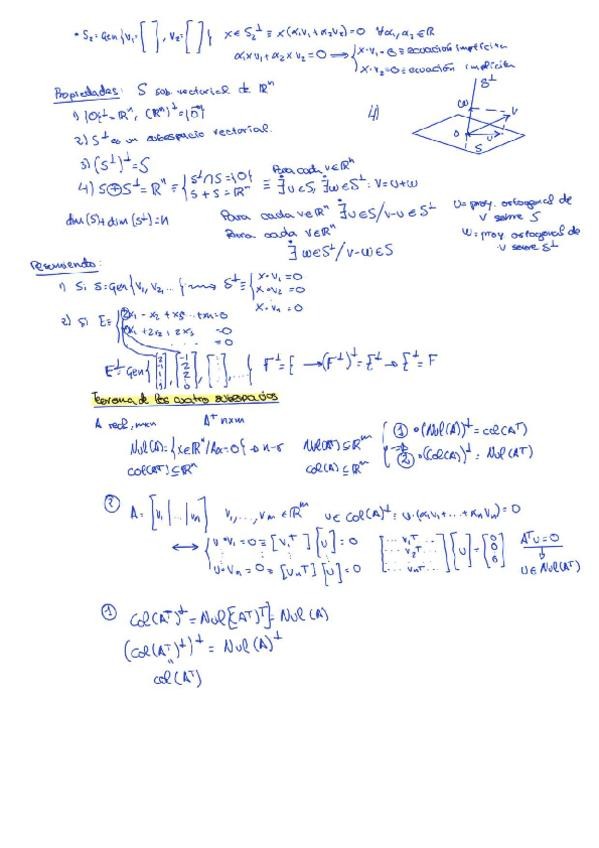 • S₂=Gen{v₁=[ ], v₂=[ ]} x∈S₂^⊥ ≡ x(α₁v₁+α₂v₂)=0 ∀α₁,α₂∈ℝ
α₁xv₁+α₂xv₂=0 ⟶ { x·v₁=0≡ecuación implícita
x·v₂=0≡ecuación implícita
Propiedades: S sub vectorial de ℝⁿ
1) {0}^⊥=ℝⁿ, (ℝⁿ)^⊥={0}
2) S^⊥ es un subespacio vectorial.
3) (S^⊥)^⊥=S
4) S⊕S^⊥=ℝⁿ ≡ { S^⊥∩S={0}
S+S^⊥=ℝⁿ ≡ Para cada v∈ℝⁿ ∃u∈S, ∃w∈S^⊥: v=u+w
4) S^⊥ w v 0 u S
dim(S)+dim(S^⊥)=n
Para cada v∈ℝⁿ ∃u∈S/v-u∈S^⊥
Para cada v∈ℝⁿ
∃w∈S^⊥/v-w∈S
u=proy. ortogonal de v sobre S
w=proy ortogonal de v sobre S^⊥
Resumiendo:
1) Si S=Gen{v₁,v₂...} ⟶ S^⊥≡{ x·v₁=0
x·v₂=0
x·vₙ=0
2) Si E≡{ 2x₁-x₂+x₃...+xₙ=0
x₁+2x₂+2x₃ =0
=0
E^⊥=Gen{[ ],[ ],[ ],...} F^⊥=E ⟶(F^⊥)^⊥=E^⊥→E^⊥=F
Teorema de los cuatro subespacios
A real, m×n A^T n×m
Nul(A)={x∈ℝⁿ/Ax=0}→n-r Nul(A^T)⊆ℝ^m
col(A^T)⊆ℝⁿ col(A)⊆ℝ^m
① •(Nul(A))^⊥=col(A^T)
② •(Col(A))^⊥=Nul(A^T)
② A=[v₁|...|vₙ] v₁,...,vₙ∈ℝ^m u∈Col(A)^⊥≡u·(α₁v₁+...+αₙvₙ)=0
⟷ { u·v₁=0≡[v₁^T][u]=0
u·vₙ=0≡[vₙ^T][u]=0
[...v₁^T... ...v₂^T... ...vₙ^T][u]=[0 0 0] A^Tu=0
u∈Nul(A^T)
① Col(A^T)^⊥=Nul[(A^T)^T]=Nul(A)
(Col(A^T)^⊥)^⊥=Nul(A)^⊥
"
col(A^T)